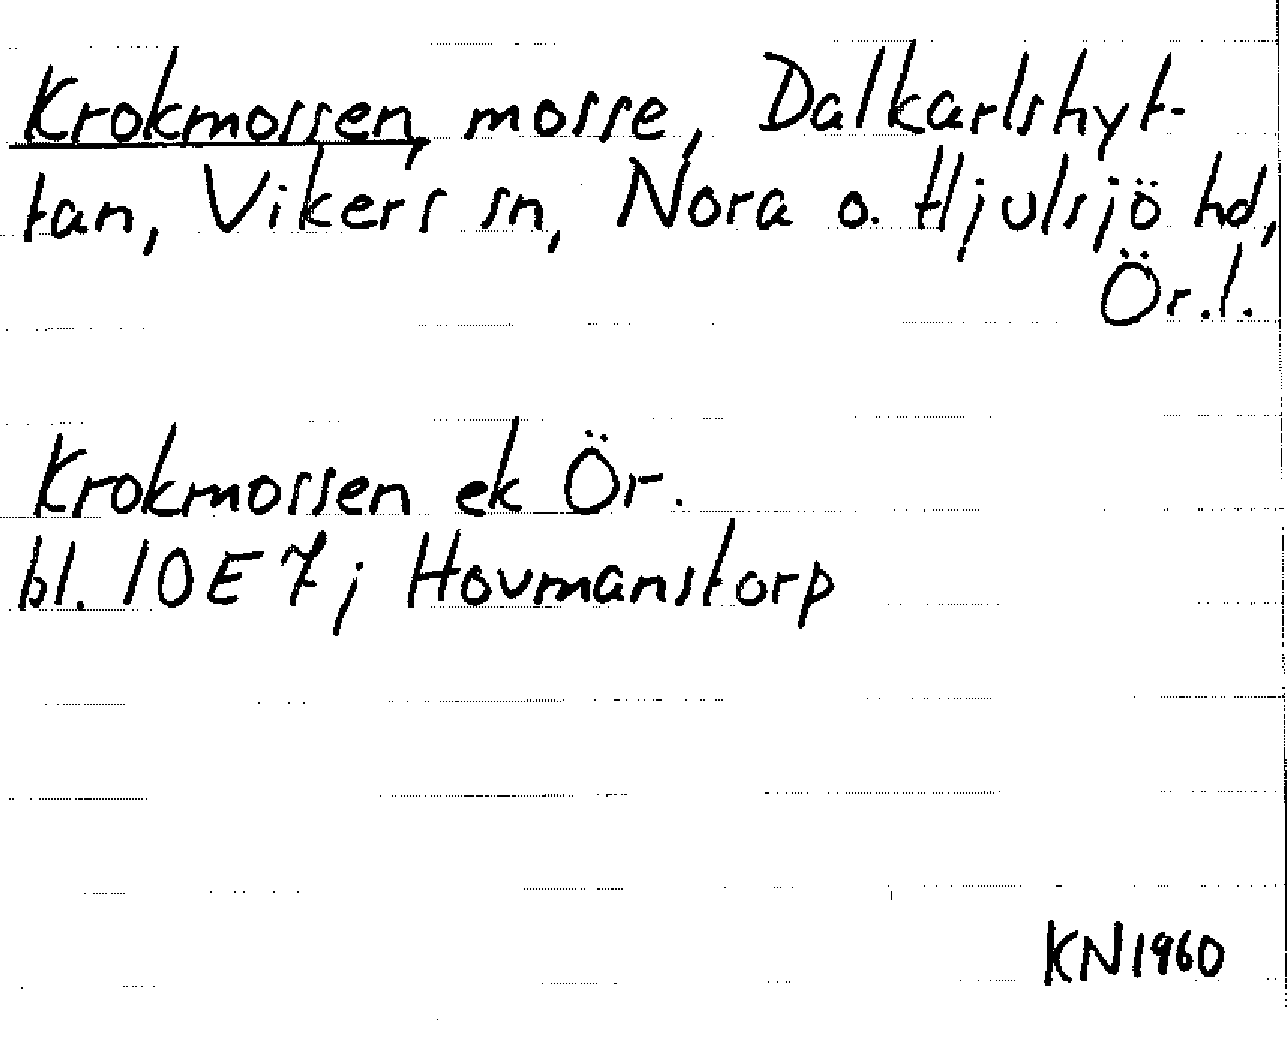 Krokmossen, mosse, Dalkarlshyt-
tan, Vikers sn, Nora o. Hjulsjö hd,
Ör.l.
Krokmossen ek Ör.
bl. 10E7j Hovmanstorp
KN1960